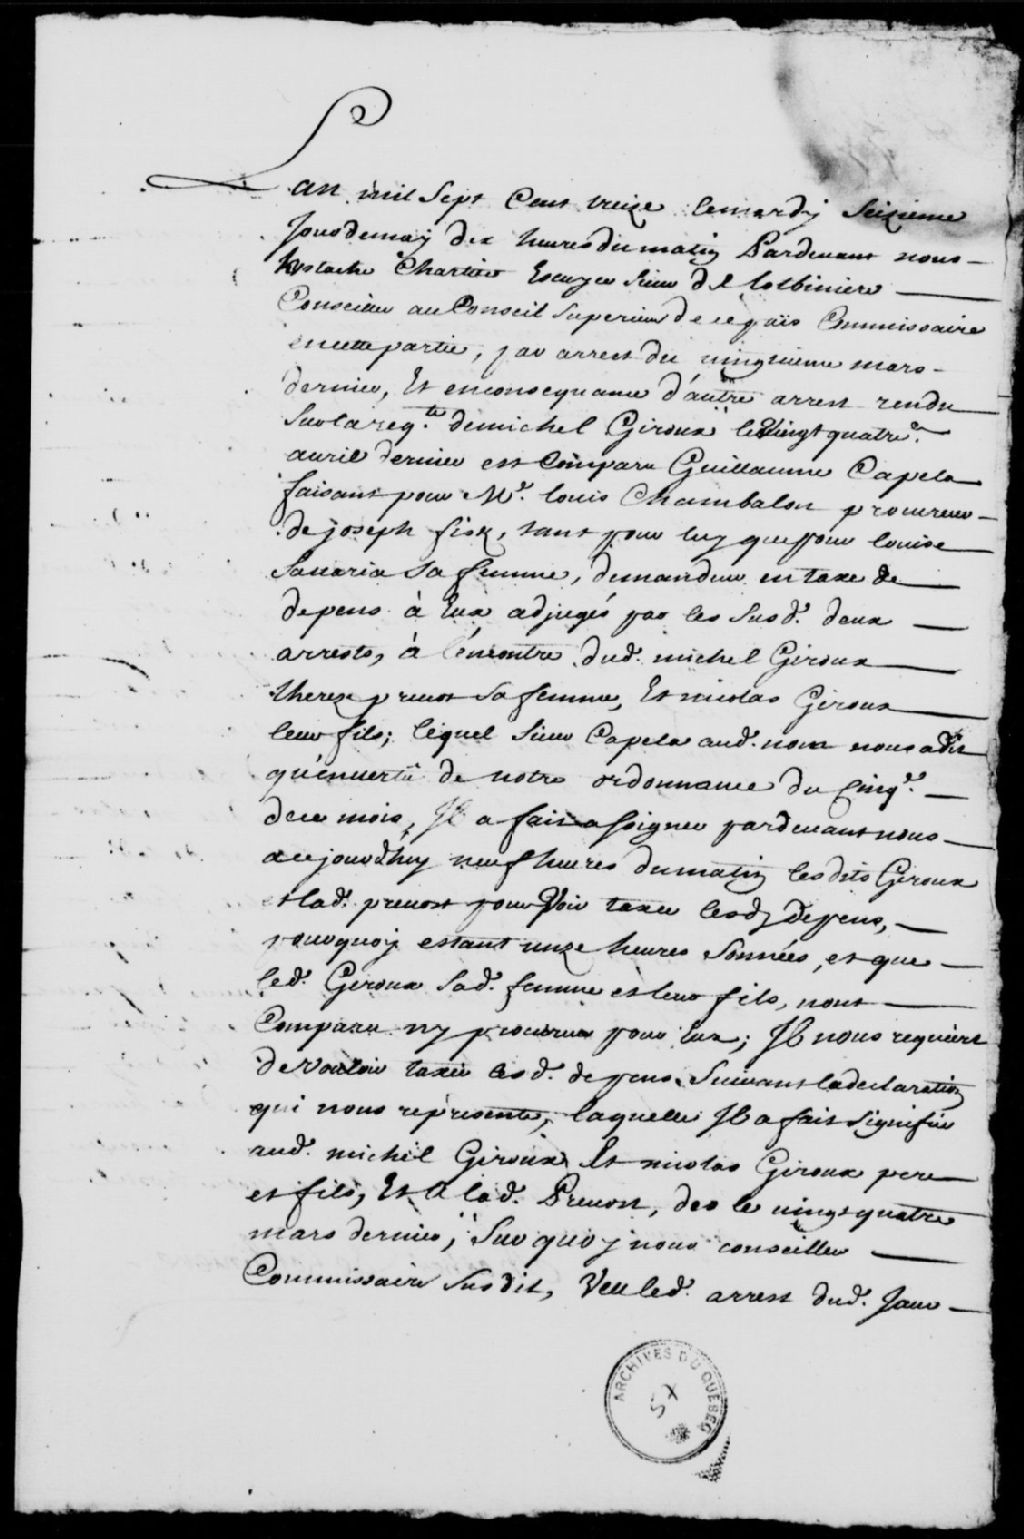 Lan mil Sept Cent treize lemardy Seizieme
Jour demay dix heures du matin Pardevant nous
Eustache Chartier Escuyer sieur de Lotbiniere
Conseiller au Conseil superieur de ce païs Commissaire
en cette partie, par arrest du vingtieme mars
dernier, Et en consequance d'autre arrest rendu
sur la reqte. de michel Giroux le vingt quatre.
avril dernier est Comparu Guillaume Capela
faisant pour Mr. louis Chambalon procureur
de joseph fisk, tant pour luy que pour louise
Savaria sa femme, demandeur en taxe de
depens à Eux adjugés par les susd. deux
arrests, à l'encontre dud. michel Giroux
therese prevost sa femme, Et nicolas Giroux
leur fils; lequel sieur Capela aud. nom nous a dit
qu'en vertu de notre ordonnance du Cinqe.
de ce mois, Il a fait assigner pardevant nous
aujourdhuy neuf heures du matin les dits Giroux
et lad. prevost pour Voir taxer lesd. depens,
pourquoy estant unze heures sonnées, et que
led. Giroux sad. femme et leur fils, nont
Comparu ny procureur pour Eux; Il nous requiert
de vouloir taxer lesd. depens suivant la declaration
qui nous represente, laquelle Il a fait signifier
aud. michel Giroux Et nicolas Giroux pere
et fils, Et à lad. Prevost, des le vingt quatre
mars dernier; sur quoy nous conseiller
Commissaire susdit, Veu led. arrest dud. Jour
ARCHIVES DU QUEBEC